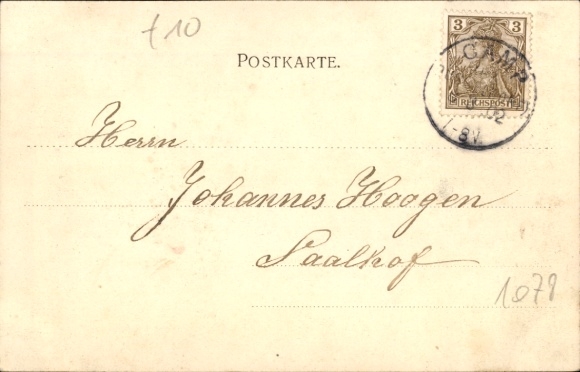 £10
POSTKARTE.
3 3
REICHSPOST
CAMP
02
7-8V.
Herrn
Johannes Hoogen
Saalhof
1078